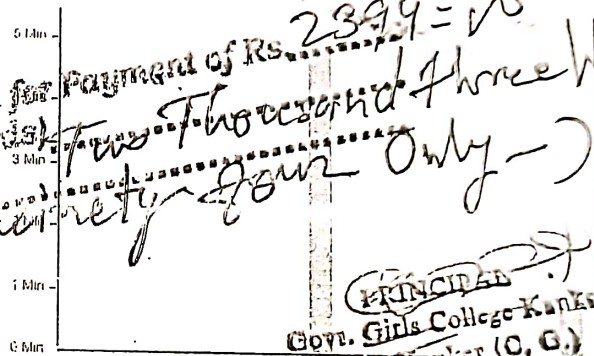 5 Min
for Payment of Rs. 2394=
Two Thousand three
3 Min
ninety four Only -)
1 Min
PRINCIPAL
Govt. Girls College Kanke
0 Min
(C. G.)